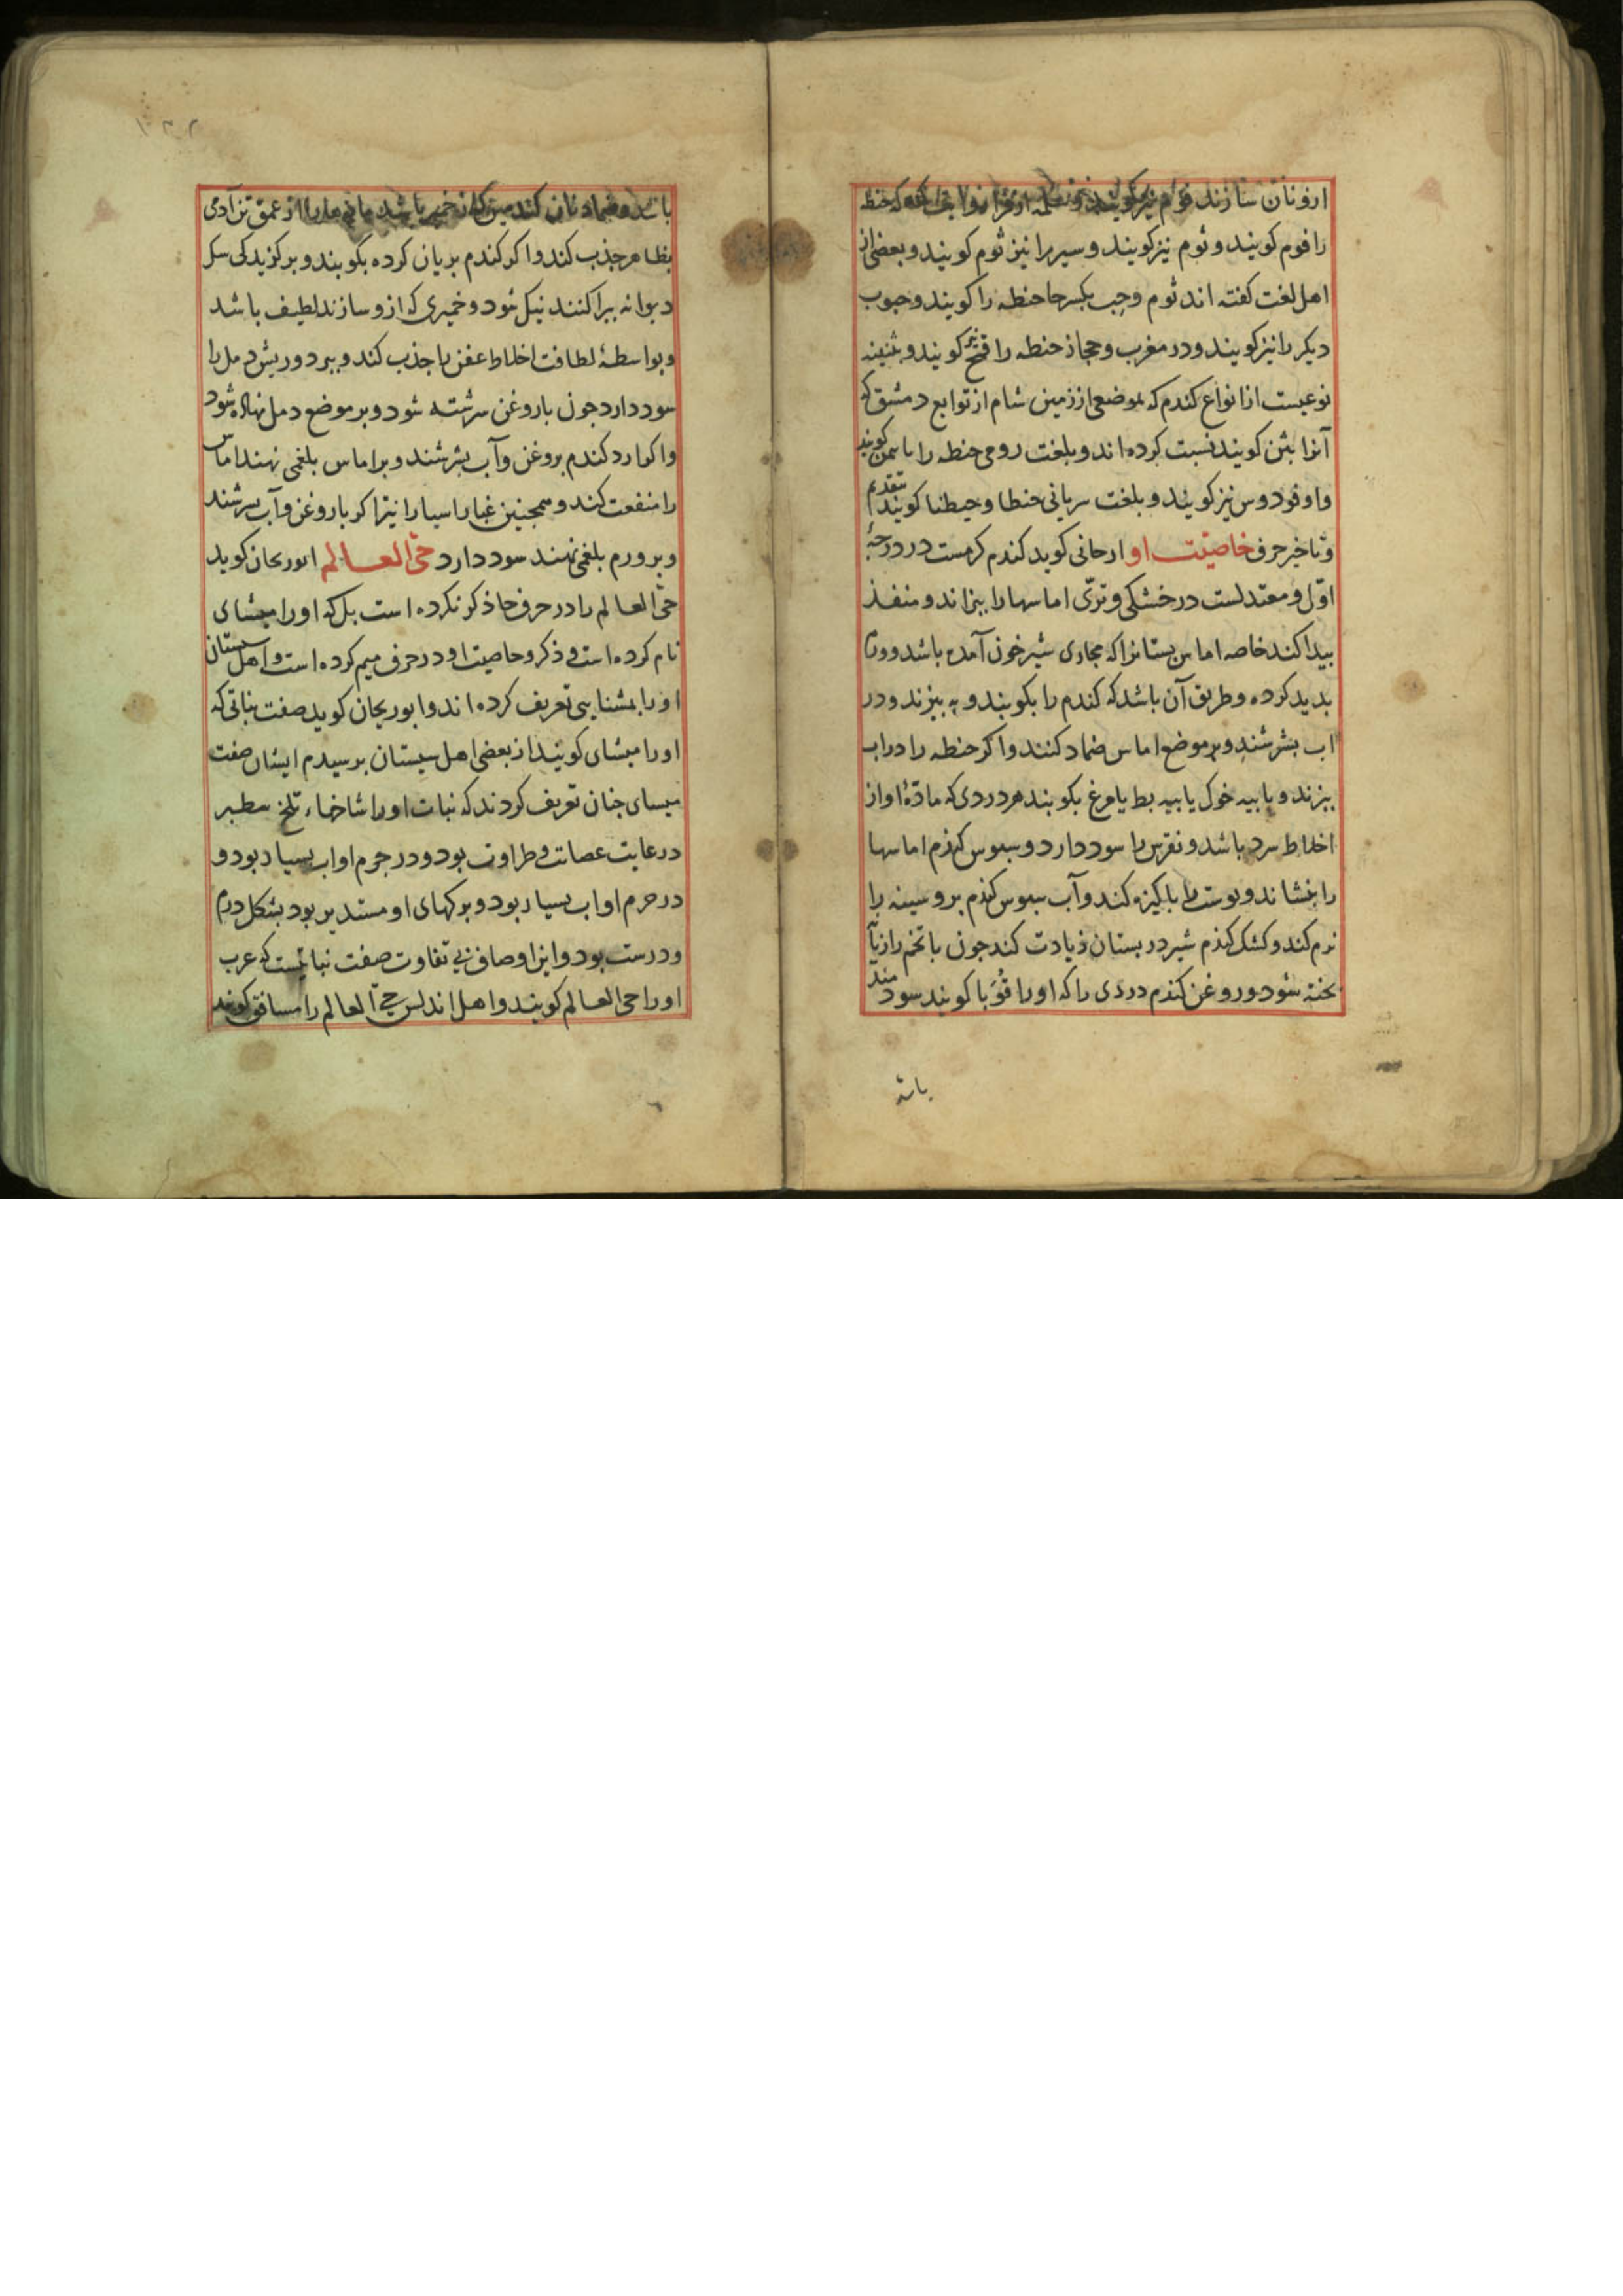 ازو نان سازند فوم نیز کویند که حنطه
را فوم کویند و ثوم نیز کویند و سیر را نیز ثوم کویند و بعضی از
اهل لغت کفته اند ثوم و حب بکسر حا حنطه را کویند و حبوب
دیکر را نیز کویند و در مغرب و حجاز حنطه را قمح کویند و بثنیه
نوعیست از انواع کندم که بموضعی از زمین شام از توابع دمشق که
آنرا بثن کویند نسبت کرده اند و بلغت رومی حنطه را کویند
واوفودوس نیز کویند و بلغت سریانی حنطا و حیطنا کویند بتقدیم
و تاخیر حرف خاصیت او ارجانی کوید کندم کرمست در درجهٔ
اوّل و معتدلست در خشکی و ترّی اماسها را بپزاند و منفذ
بیدا کند خاصه اماس بستانرا که مجاری شیر خون آمده باشد و ورم
بدید کرده و طریق آن باشد که کندم را بکوبند و به بیزند و در
اب بشرشند و بر موضع اماس ضماد کنند و اکر حنطه را در اب
بپزند و با بیه خوک یا بیه بط یا مرغ بکوبند هر دردی که مادّهٔ او از
اخلاط سرد باشد و نقرس را سود دارد و سبوس کندم اماسها
را بنشاند و بوست را باکیزه کند و آب سبوس کندم برو سینه را
نرم کند و کشک کندم شیر در بستان زیادت کند جون با تخم رازیا
بخته شود و روغن کندم دردی را که اورا قوبا کویند سودمند
باشد
باشد و ضماد نان کندمین که از خمیر باشد مانی مارا از عمق تن آدمی
بظاهر جذب کند و اکر کندم بریان کرده بکوبند و بر کزیدکی سک
دیوانه براکنند نیک شود و خمیری که ازو سازند لطیف باشد
و بواسطهٔ لطافت اخلاط عفن را جذب کند و ببرد و ریش دمل را
سود دارد جون با روغن سرشته شود و بر موضع دمل نهاده شود
و اکر آرد کندم بروغن و آب بشرشند و بر اماس بلغمی نهند اماس
را منفعت کند و همجنین غبار اسیا را نیز اکر با روغن و آب بسرشند
و بر ورم بلغمی نهند سود دارد حیّ العالم ابوریحان کوید
حیّ العالم را در حرف حا ذکر نکرده است بل که اورا میشای
نام کرده است و ذکر و خاصیت او در حرف میم کرده است و اهل سیستان
اورا بمشنایی تعریف کرده اند و ابوریحان کوید صفت نباتی که
اورا میشای کویند از بعضی اهل سیستان برسیدم ایشان صفت
میسای جنان تعریف کردند که نبات اورا شاخهاء تلخ سطبر
در غایت عصات و طراوت بود و در جرم او اب بسیار بود و
در جرم او اب بسیار بود و برکهای او مستدیر بود بشکل درم
و درست بود و این اوصاف بی تفاوت صفت نباتیست که عرب
اورا حی العالم کویند و اهل اندلس حیّ العالم را مسافق کویند